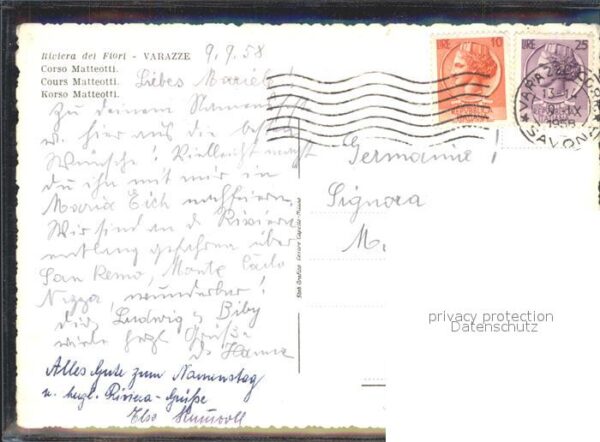 Riviera dei Fiori - VARAZZE
Corso Matteotti.
Cours Matteotti.
Korso Matteotti.
9.9.58
Liebes Mariele!
Zu deinem Namenst
w. hier aus die besten
Wünsche! Vielleicht magst
du ihn mit mir in
Maria Eich nachfeiern.
Wir sind an d. Riviera
entlang gefahren über
San Remo, Monte Carlo
Nizza, wunderbar!
Ludwig u. Biby
viele herzl. Grüße
Hanna
Alles Gute zum Namenstag
u. herzl. Riviera-Grüße
Else
LIRE 10
LIRE 25
VARAZZE
13-14
9 IX
SAVONA
Germania!
Signora
M.
privacy protection
Datenschutz